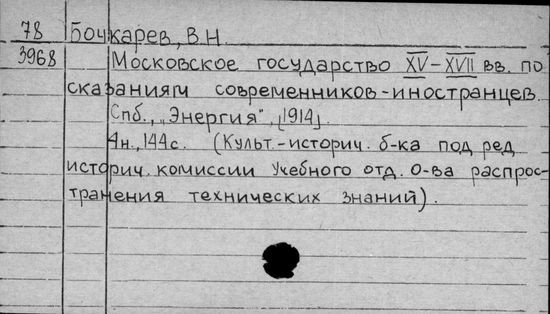 78 Бочкарев, В.Н.
3968 Московское государство XV-XVII вв. по
сказаниям современников-иностранцев.
Спб., „Энергия", [1914].
4н., 144с. (Культ.-историч. б-ка под ред
историч. комиссии Учебного отд. о-ва распрос-
транения технических знаний).